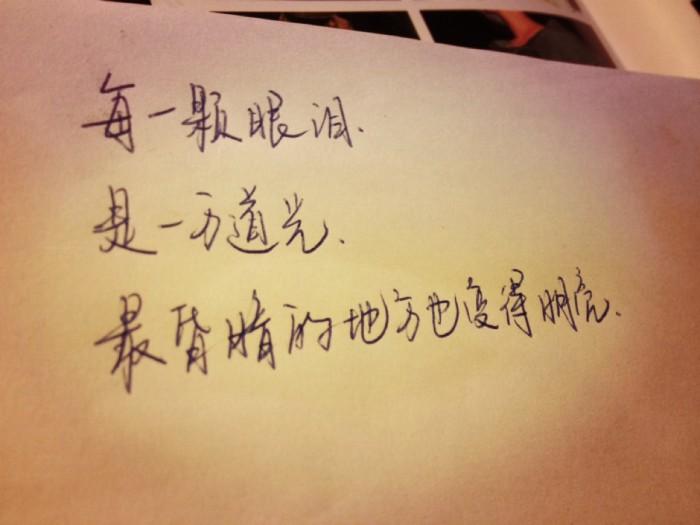 每一颗眼泪.
是一万道光.
最昏暗的地方也变得明亮.